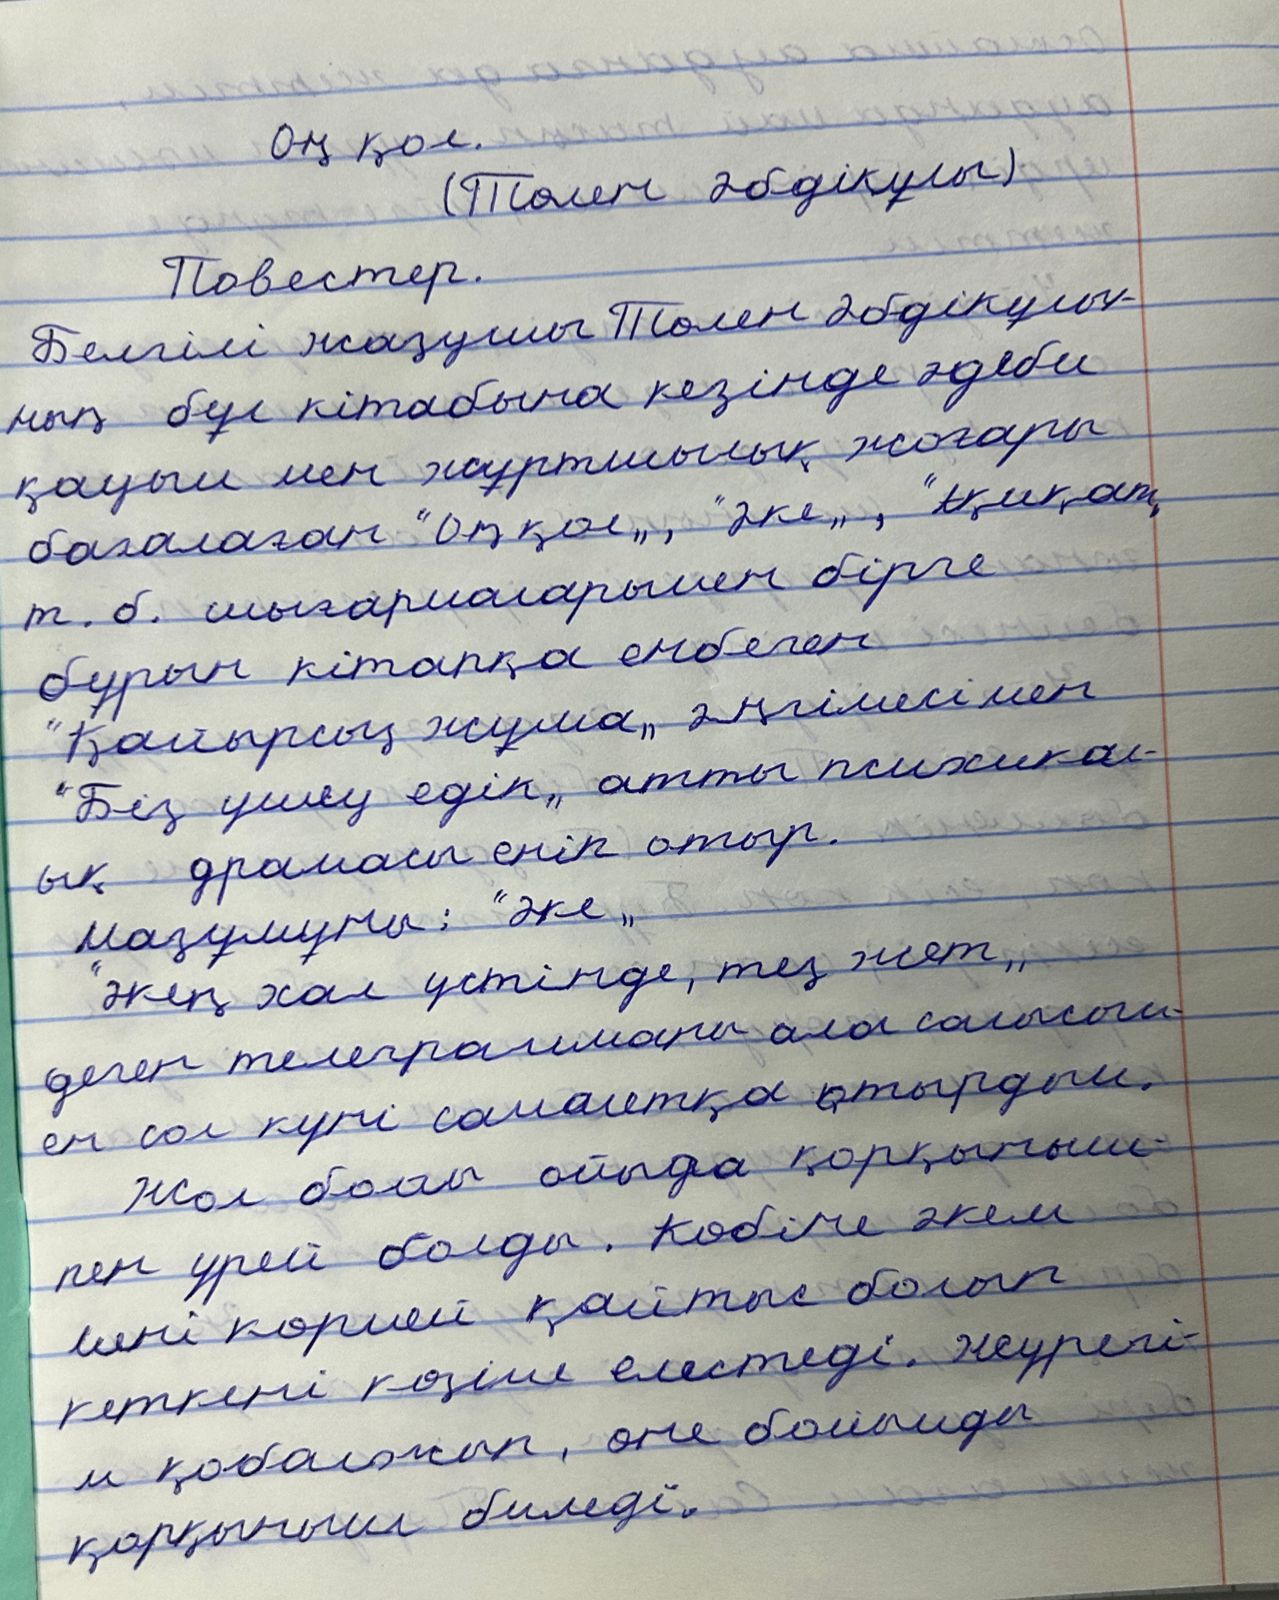 Оң қол.
(Төлен Әбдіқұлы)
Повестер.
Белгілі жазушы Төлен Әбдіқұлы-
ның бұл кітабына кезінде әдеби
қауым мен жұртшылық жоғары
бағалаған "Оң қол", "Әке", "Ақиқат,
т. б. шығармаларымен бірге
бұрын кітапқа енбеген
"Қайырсыз жұма" әңгімесімен
"Біз үшеу едік" атты психикал-
ық драмасы еніп отыр.
Мазұмұны: "Әке"
"Әкең хал үстінде, тез жет"
деген телеграмманы ала салысым-
ен сол күні самалетқа отырдым.
Жол бойы ойыда қорқыныш-
пен үрей болды. Көбіне әкем
мені көрмей қайтыс болып
кеткені көзіме елестеді. Жүрегі-
м қобалжып, өне бойымды
қорқыныш биледі.